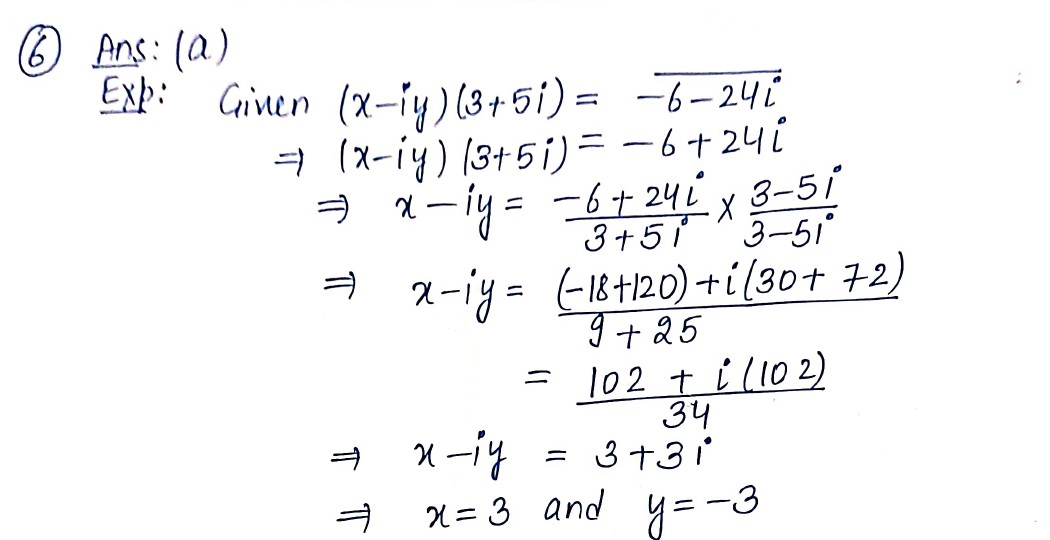 ⑥ Ans: (a)
Exp: Given (x-iy)(3+5i) = \overline{-6-24i}
⇒ (x-iy)(3+5i) = -6+24i
⇒ x-iy = \frac{-6+24i}{3+5i} × \frac{3-5i}{3-5i}
⇒ x-iy = \frac{(-18+120)+i(30+72)}{9+25}
= \frac{102+i(102)}{34}
⇒ x-iy = 3+3i
⇒ x=3 and y=-3